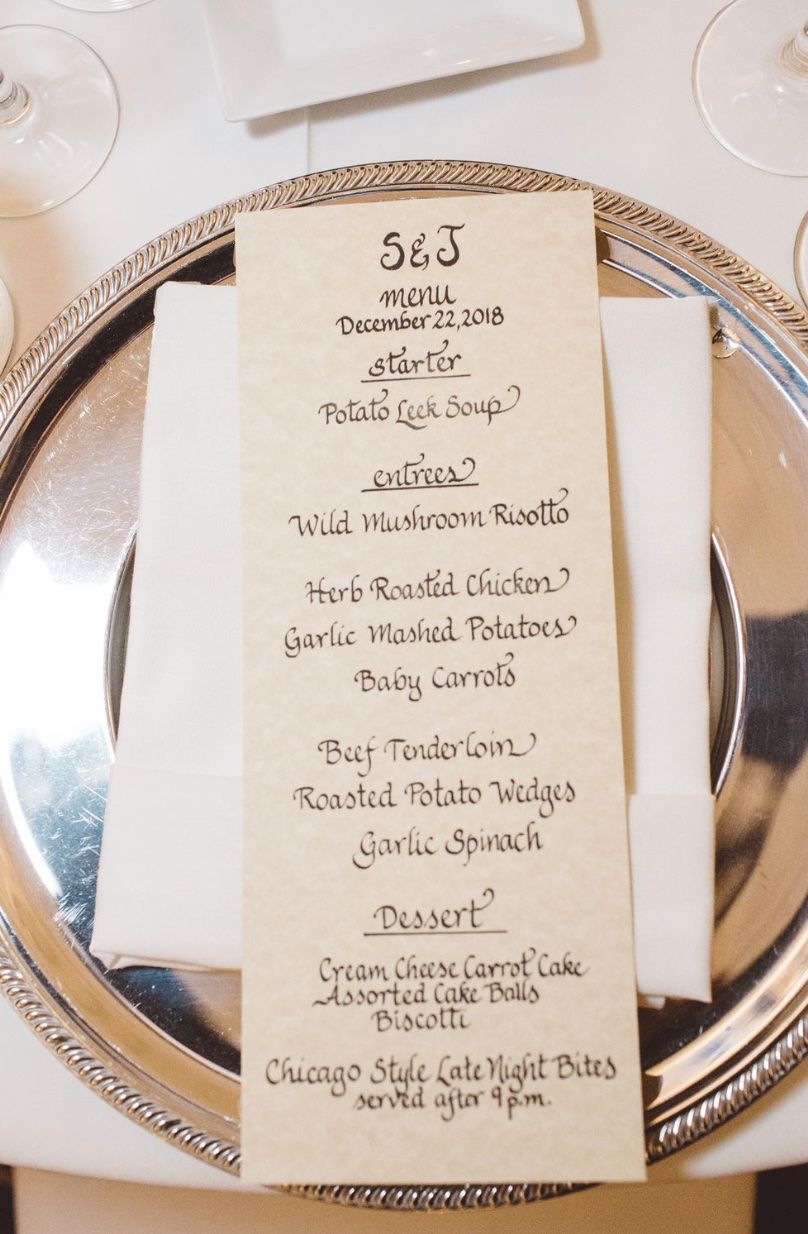 S & J
menu
December 22, 2018
starter
Potato Leek Soup
entrees
Wild Mushroom Risotto
Herb Roasted Chicken
Garlic Mashed Potatoes
Baby Carrots
Beef Tenderloin
Roasted Potato Wedges
Garlic Spinach
Dessert
Cream Cheese Carrot Cake
Assorted Cake Balls
Biscotti
Chicago Style Late Night Bites
served after 9 p.m.